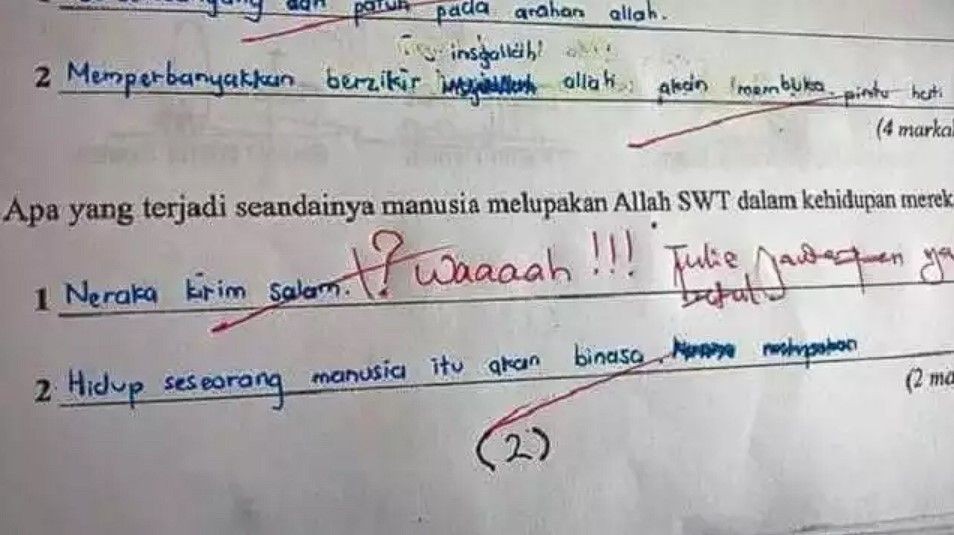 dan patuh pada arahan allah.
insyallah!
2 Memperbanyakkan berzikir allah, akan membuka pintu hati
(4 markah
Apa yang terjadi seandainya manusia melupakan Allah SWT dalam kehidupan merek
1 Neraka kirim salam. ? Waaaah !!! Tulis Jawapan ya
betul
2 Hidup seseorang manusia itu akan binasa.
(2 ma
(2)